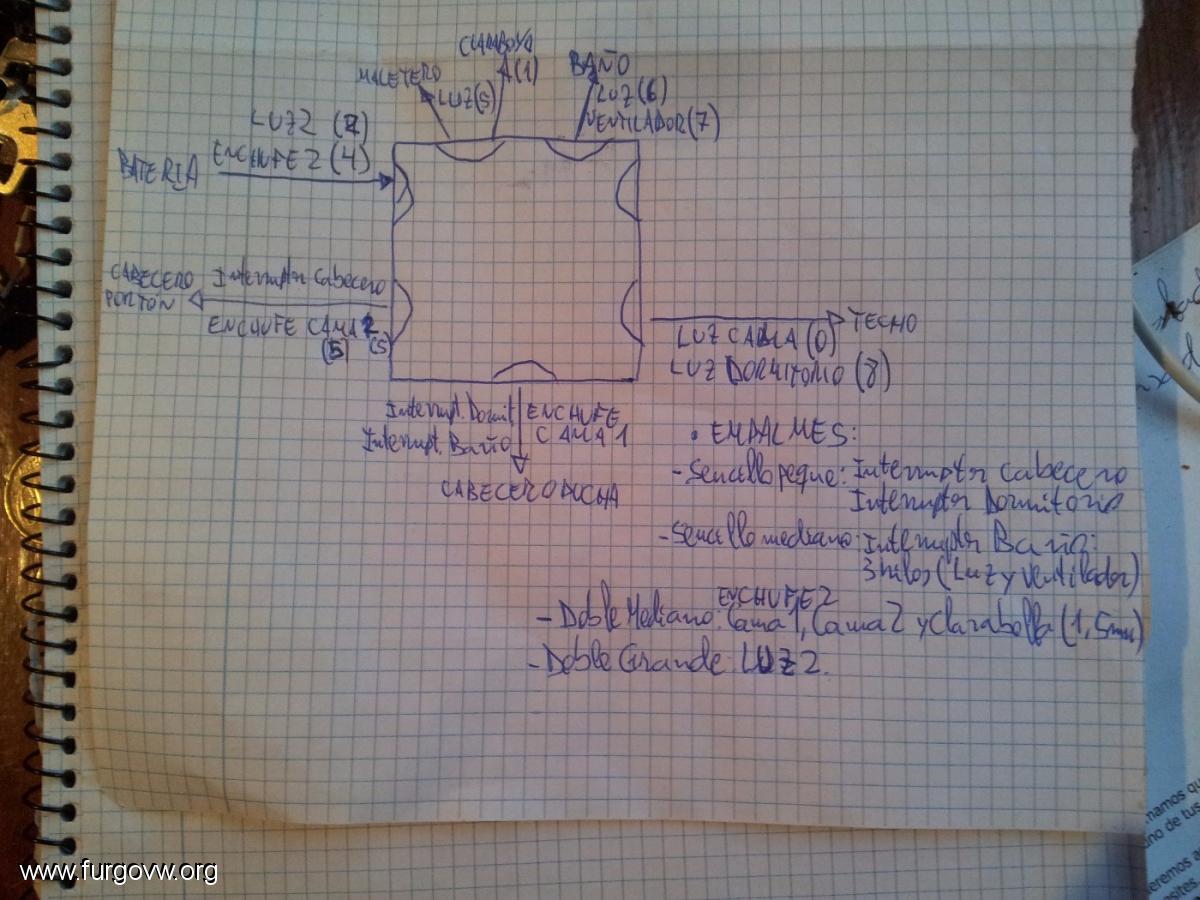 CLARABOYA
A(1)
MALETERO
LUZ(5)
BAÑO
LUZ(6)
VENTILADOR(7)
LUZ2 (2)
ENCHUFE 2 (4)
BATERIA
CABECERO
PORTON
Interruptor Cabecero
ENCHUFE CAMA 2
(5) (5)
TECHO
LUZ CAMA (0)
LUZ DORMITORIO (8)
Interrupt. Dormit
Interrupt. Baño
ENCHUFE
CAMA 1
CABECERO DUCHA
• EMPALMES:
- Sencillo peque: Interruptor Cabecero
Interruptor Dormitorio
- Sencillo mediano: Interruptor Baño:
3 hilos (Luz y Ventilador)
ENCHUFE 2
- Doble Mediano: Cama 1, Cama 2 y Clarabella (1,5mm)
- Doble Grande: LUZ 2.
www.furgovw.org
mamos qu
uno de tus
eremos a